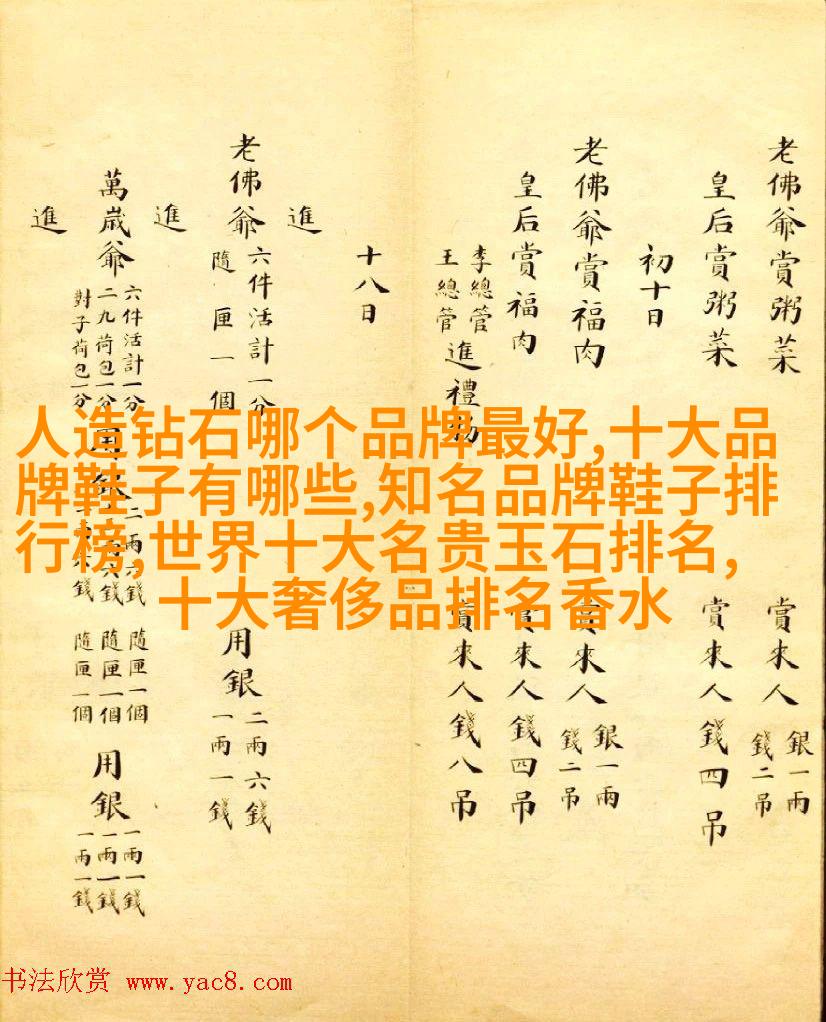 老佛爺賞粥菜 賞來人 銀一兩 錢二吊
皇后賞粥菜 賞來人錢四吊
初十日
老佛爺賞福肉 賞來人 銀一兩 錢二吊
皇后賞福肉 賞來人錢四吊
李總管 王總管 進禮物 賞來人錢八吊
十八日
進
老佛爺 六件活計一分 隨匣一個 用銀 二兩六錢 一兩一錢
進
萬歲爺 六件活計一分 二九荷包一分 對子荷包一分 用銀 二兩六錢 隨匣一個 隨匣一個 隨匣一個 用銀 一兩一錢 一兩一錢 一兩一錢
進
人造钻石哪个品牌最好,十大品
牌鞋子有哪些,知名品牌鞋子排
行榜,世界十大名贵玉石排名,
十大奢侈品排名香水
书法欣赏 www.yac8.com